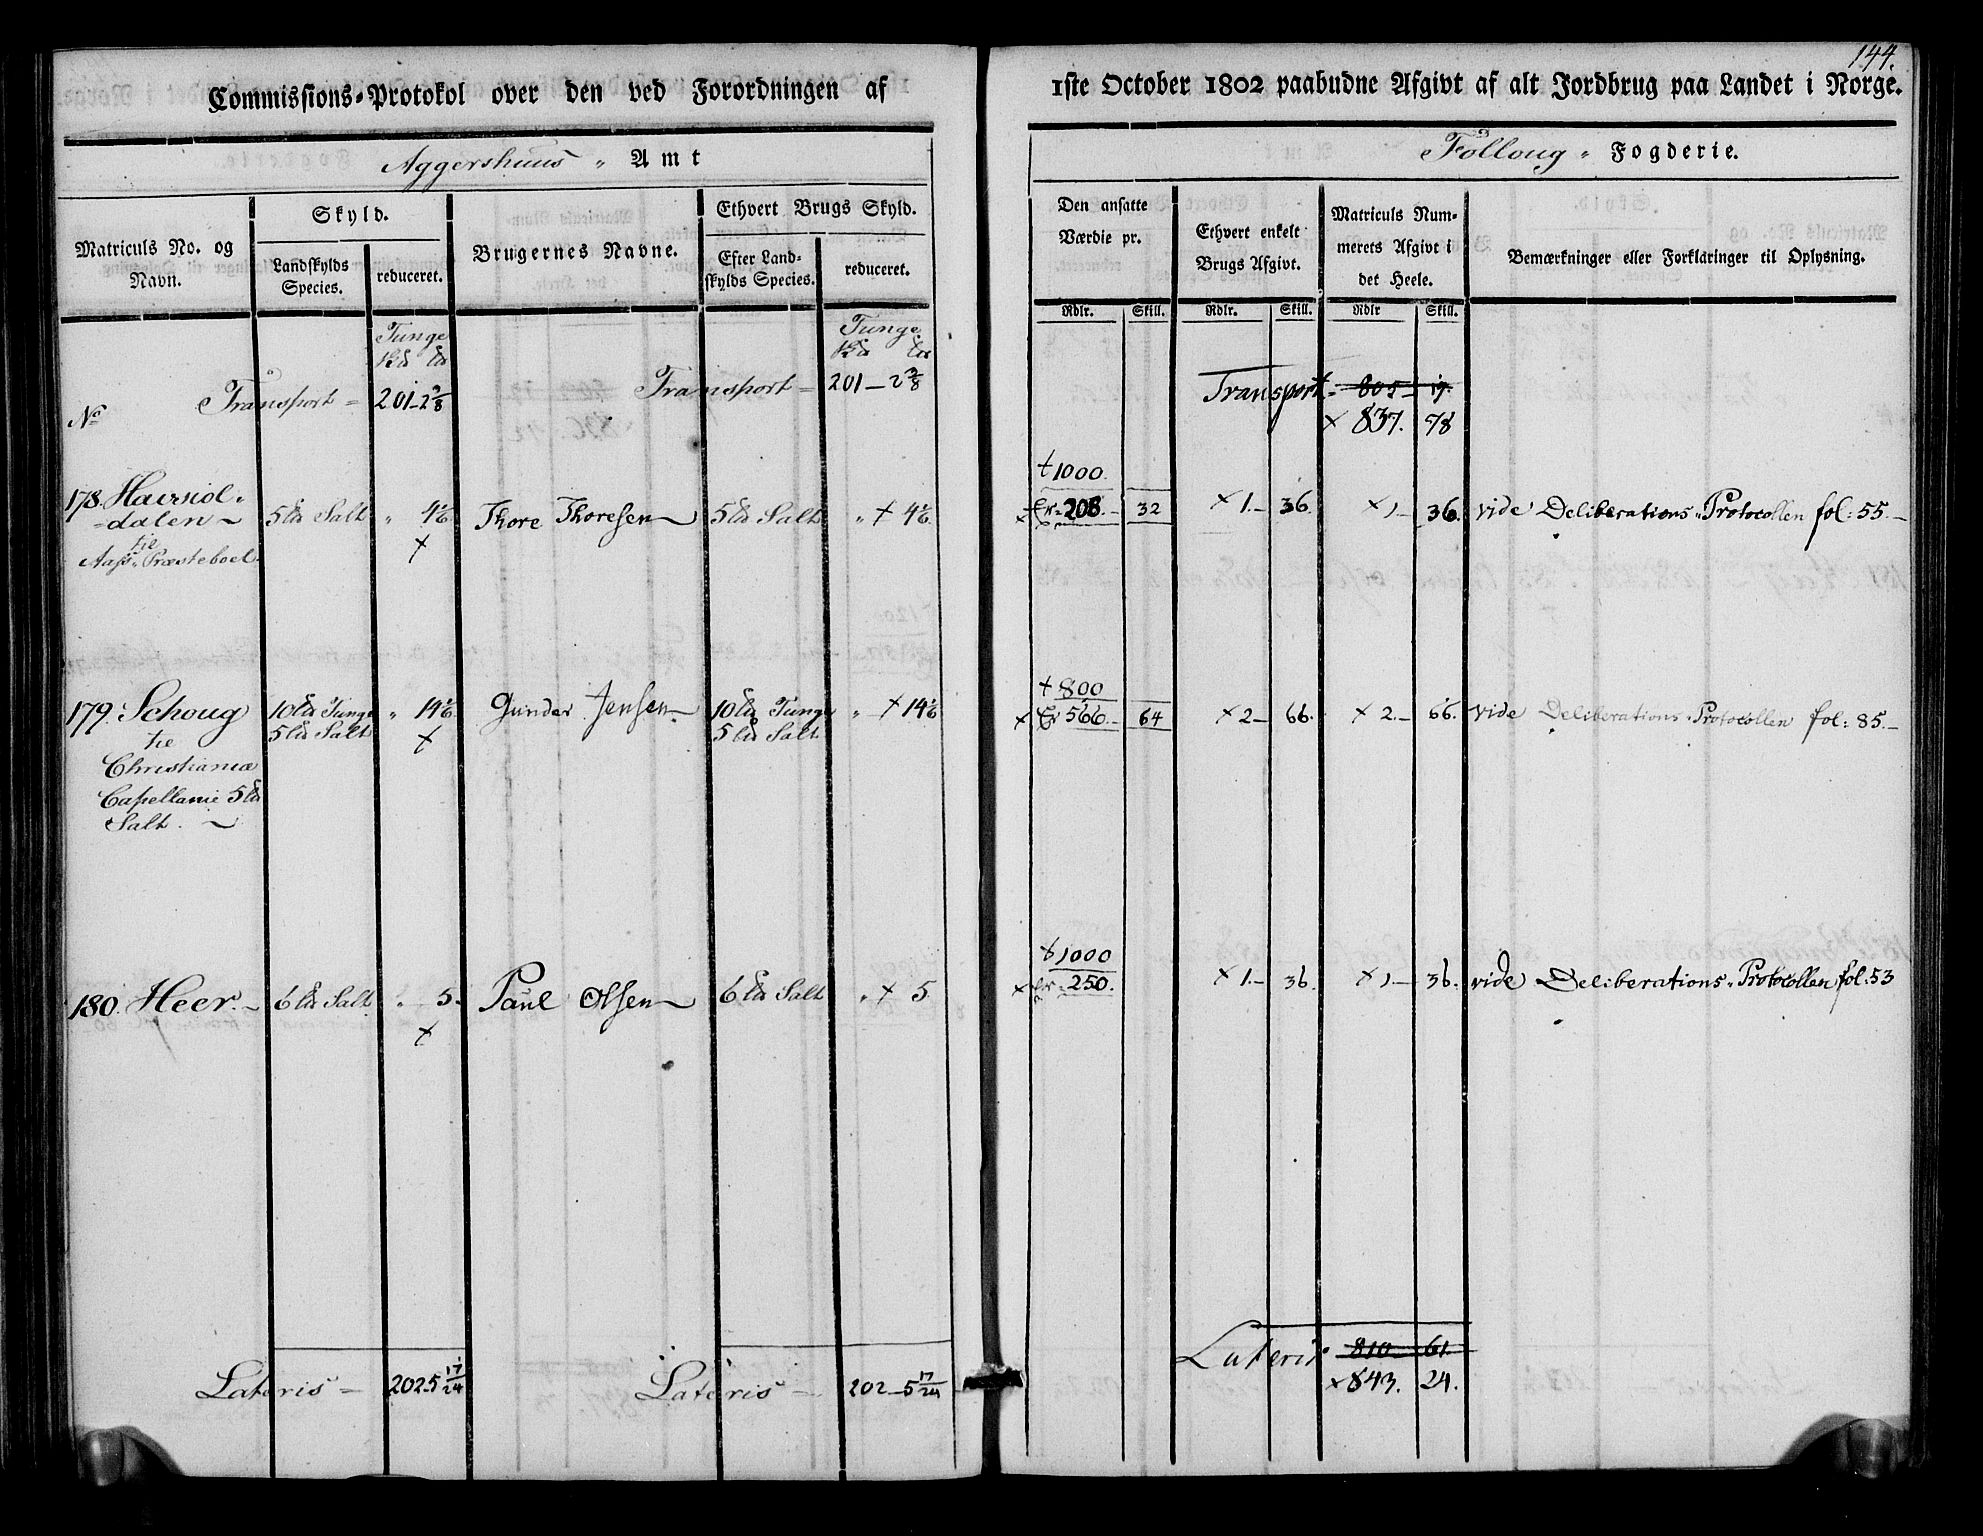 144.
Commissions-Protokol over den ved Forordningen af
1ste October 1802 paabudne Afgivt af alt Jordbrug paa Landet i Norge.
Aggershuus „ Amt
Folloug „ Fogderie.
Matriculs No. og Navn.
Skyld.
Landskylds Species.
reduceret.
Brugernes Navne.
Ethvert Brugs Skyld.
Efter Landskylds Species.
reduceret.
Den ansatte Værdie pr.
Ethvert enkelt Brugs Afgivt.
Matriculs Nummerets Afgivt i det Heele.
Bemærkninger eller Forklaringer til Oplysning.
Rdlr. Skill. Rdlr. Skill. Rdlr Skill.
Tunge Tunge
No Transport = 201-2 Transport = 201-2 Transport = 805- 19.
× 837. 78
† 1000.
178. Haversiol- 5 Salt „ 4 1/6 Thore Thoresen 5 Salt „ × 4 1/6 × 208.- 32 × 1.- 36. × 1- 36. vide Deliberations-Protocollen fol: 55.-
=dalen
til
Aass Præsteboel
† 800
179. Schoug 10 Tunge „ 14 1/6 Gunder Jensen 10 Tunge „ × 14 1/6 × 566.- 64 × 2- 66. × 2.- 66. vide Deliberations-Protocollen fol: 85.-
5 Salt 5 Salt
til
Christiania
Capellanie 5
Salt.
† 1000
180. Heer.- 6 Salt „ 5. Paul Olsen 6 Salt „ × 5 × 250. × 1- 36. × 1- 36. vide Deliberations-Protocollen fol: 53
Lateris = 202.5 17/24 Lateris - 202-5 17/24 Lateris 810- 61.
× 843. 24.